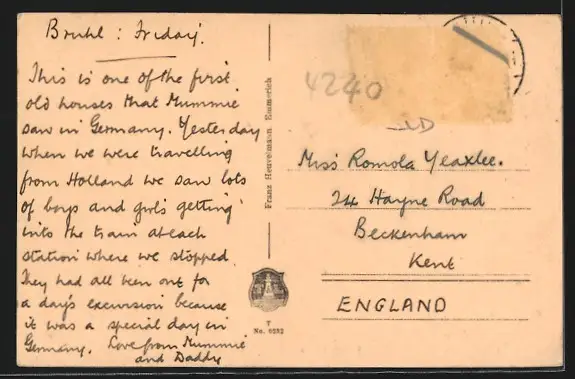 Bruhl : Friday.
This is one of the first
old houses that Mummie
saw in Germany. Yesterday
when we were travelling
from Holland we saw lots
of boys and girls getting
into the train at each
station where we stopped.
They had all been out for
a day's excursion because
it was a special day in
Germany. Love from Mummie
and Daddy
Franz Heuvelmann Emmerich
T
No. 6292
4240
Miss Romola Yeaxlee.
24 Hayne Road
Beckenham
Kent
ENGLAND